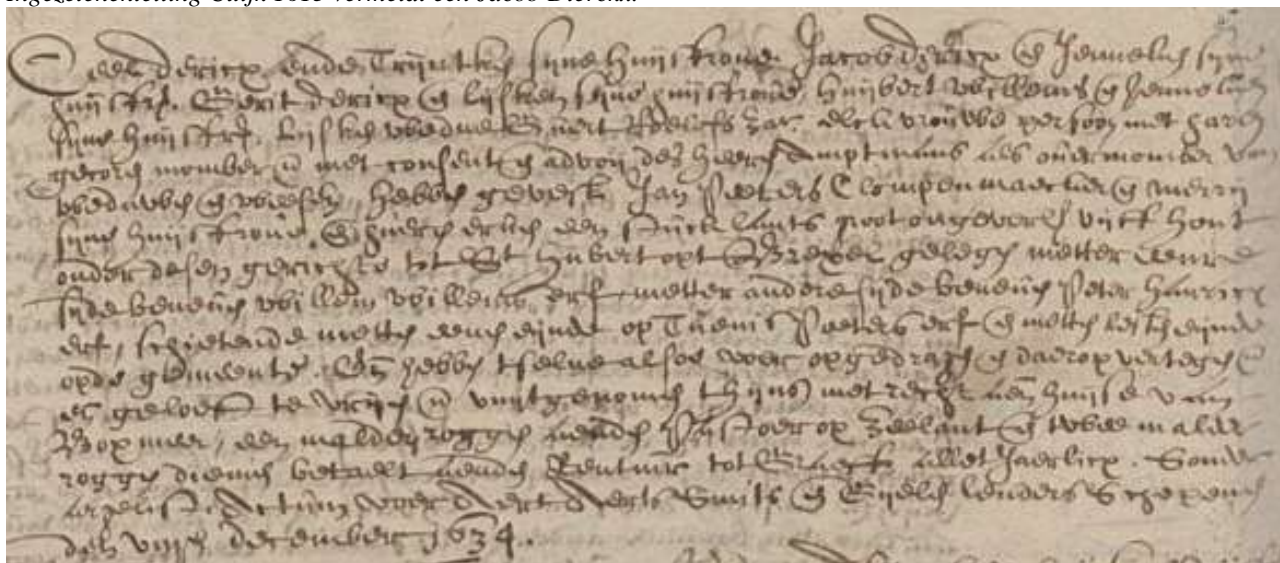 Ingezetenentelling Cuijk 1615 vermeldt een Jacob Diercx.
Deel dericx ende Trijntken sijne huijsfrouwe Jacob dericx en Jenneken sijne
huijsfr. Gerit dericx en lijsken sijne huijsfrouwe, huijbert willems en Jenneken
sijne huijsfr. Lijsken wedue Geert Roeloffs zar. elck vrouwe persoon met haren
gecoren momber en met consent en advoij des heeren Amptmans als overmomber van
weduwen en weesen, hebben geverk Jan Peeters Clompenmaecker en merrij
sijne huijsfrouwe en hueren erven een stuck lants groot ongeverlic vijff hont
onder desen gerichte tot St hubert opt gelegen metter eenre
sijde beneven willem willems erf metter andere sijde beneven Peter henricx
erf, schietende metten eenen eijnde op Tijenis Peeters erf en metten lesten eijnde
opde gemeente. En hebben tselve alsoe voer opgedragen en daerop vertegen
en geloeft te vrijen en vuijtgenomen thijns met recht aen huijse van
Boxmeer, een malder roggen aenden Pastoer op Zeelant en twee malder
roggen diemen betaelt aenden Rentmr tot Graeff allet Jaerlicx. Sonder
argelist. Actum voer Aert Aerts Smits en lenders Schepenen
den viijen december 1634.